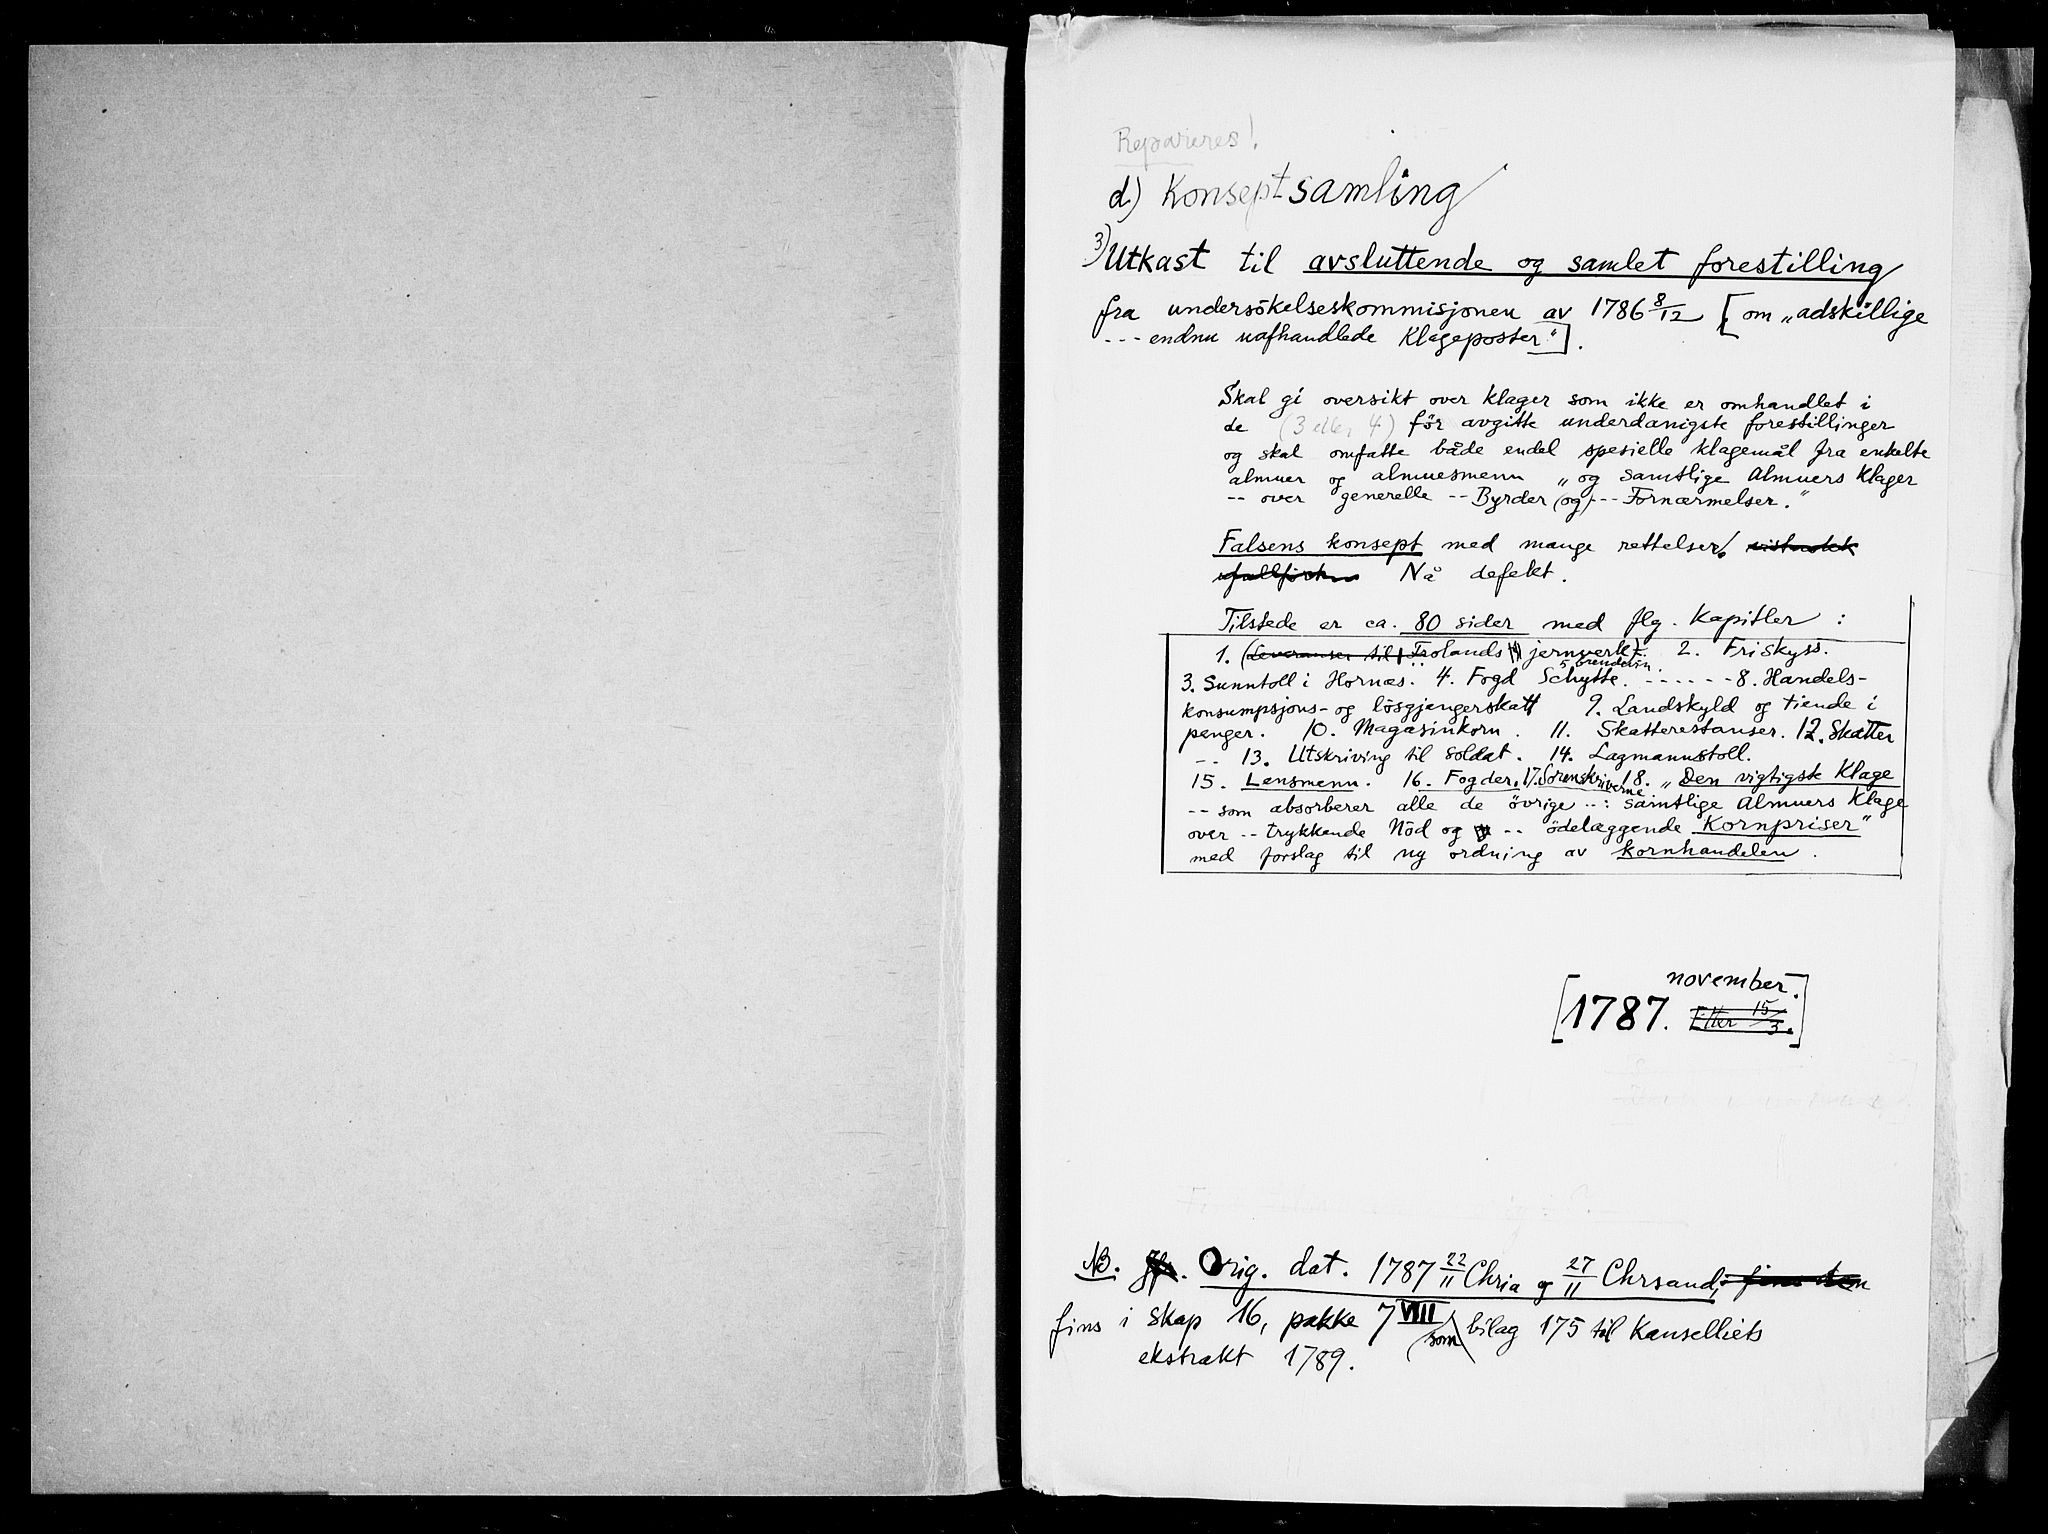 Repareres!
d) Konseptsamling
3) Utkast til avsluttende og samlet forestilling
fra undersökelseskommisjonen av 1786 8/12 [om „adskillige
--- endnu uafhandlede Klageposter"].
Skal gi oversikt over klager som ikke er omhandlet i
de (3 eller 4) før avgitte underdanigste forestillinger
og skal omfatte både endel spesielle klagemål fra enkelte
almuer og almuesmenn „og samtlige Almuers Klager
-- over generelle -- Byrder (og) --- Fornærmelser."
Falsens konsept med mange rettelser.
Nå defekt.
Tilstede er ca. 80 sider med flg. Kapitler :
1. (Leveranser til) Frolands jernverk. 2. Friskyss.
3. Sunntoll i Hornæs. 4. Fogd Schytte. 5 brendevin. ------ 8. Handels-
konsumpsjons- og lösgjengerskatt 9. Landskyld og tiende i
penger. 10. Magasinkorn. 11. Skatterestanser. 12. Skatter
-- 13. Utskriving til soldat. 14. Lagmannstoll.
15. Lensmenn. 16. Fogder. 17. Sorenskriverne. 18. „Den vigtigste Klage
-- som absorberer alle de övrige --: samtlige Almuers Klage
over -- trykkende Nöd og -- ödelæggende Kornpriser"
med forslag til ny ordning av kornhandelen.
november.
[1787. Etter 15/3.]
NB. Jfr. Orig. dat. 1787 22/11 Chria og 27/11 Chrsand, fins den
fins i skap 16, pakke 7 VIII (som) bilag 175 til Kanselliets
ekstrakt 1789.